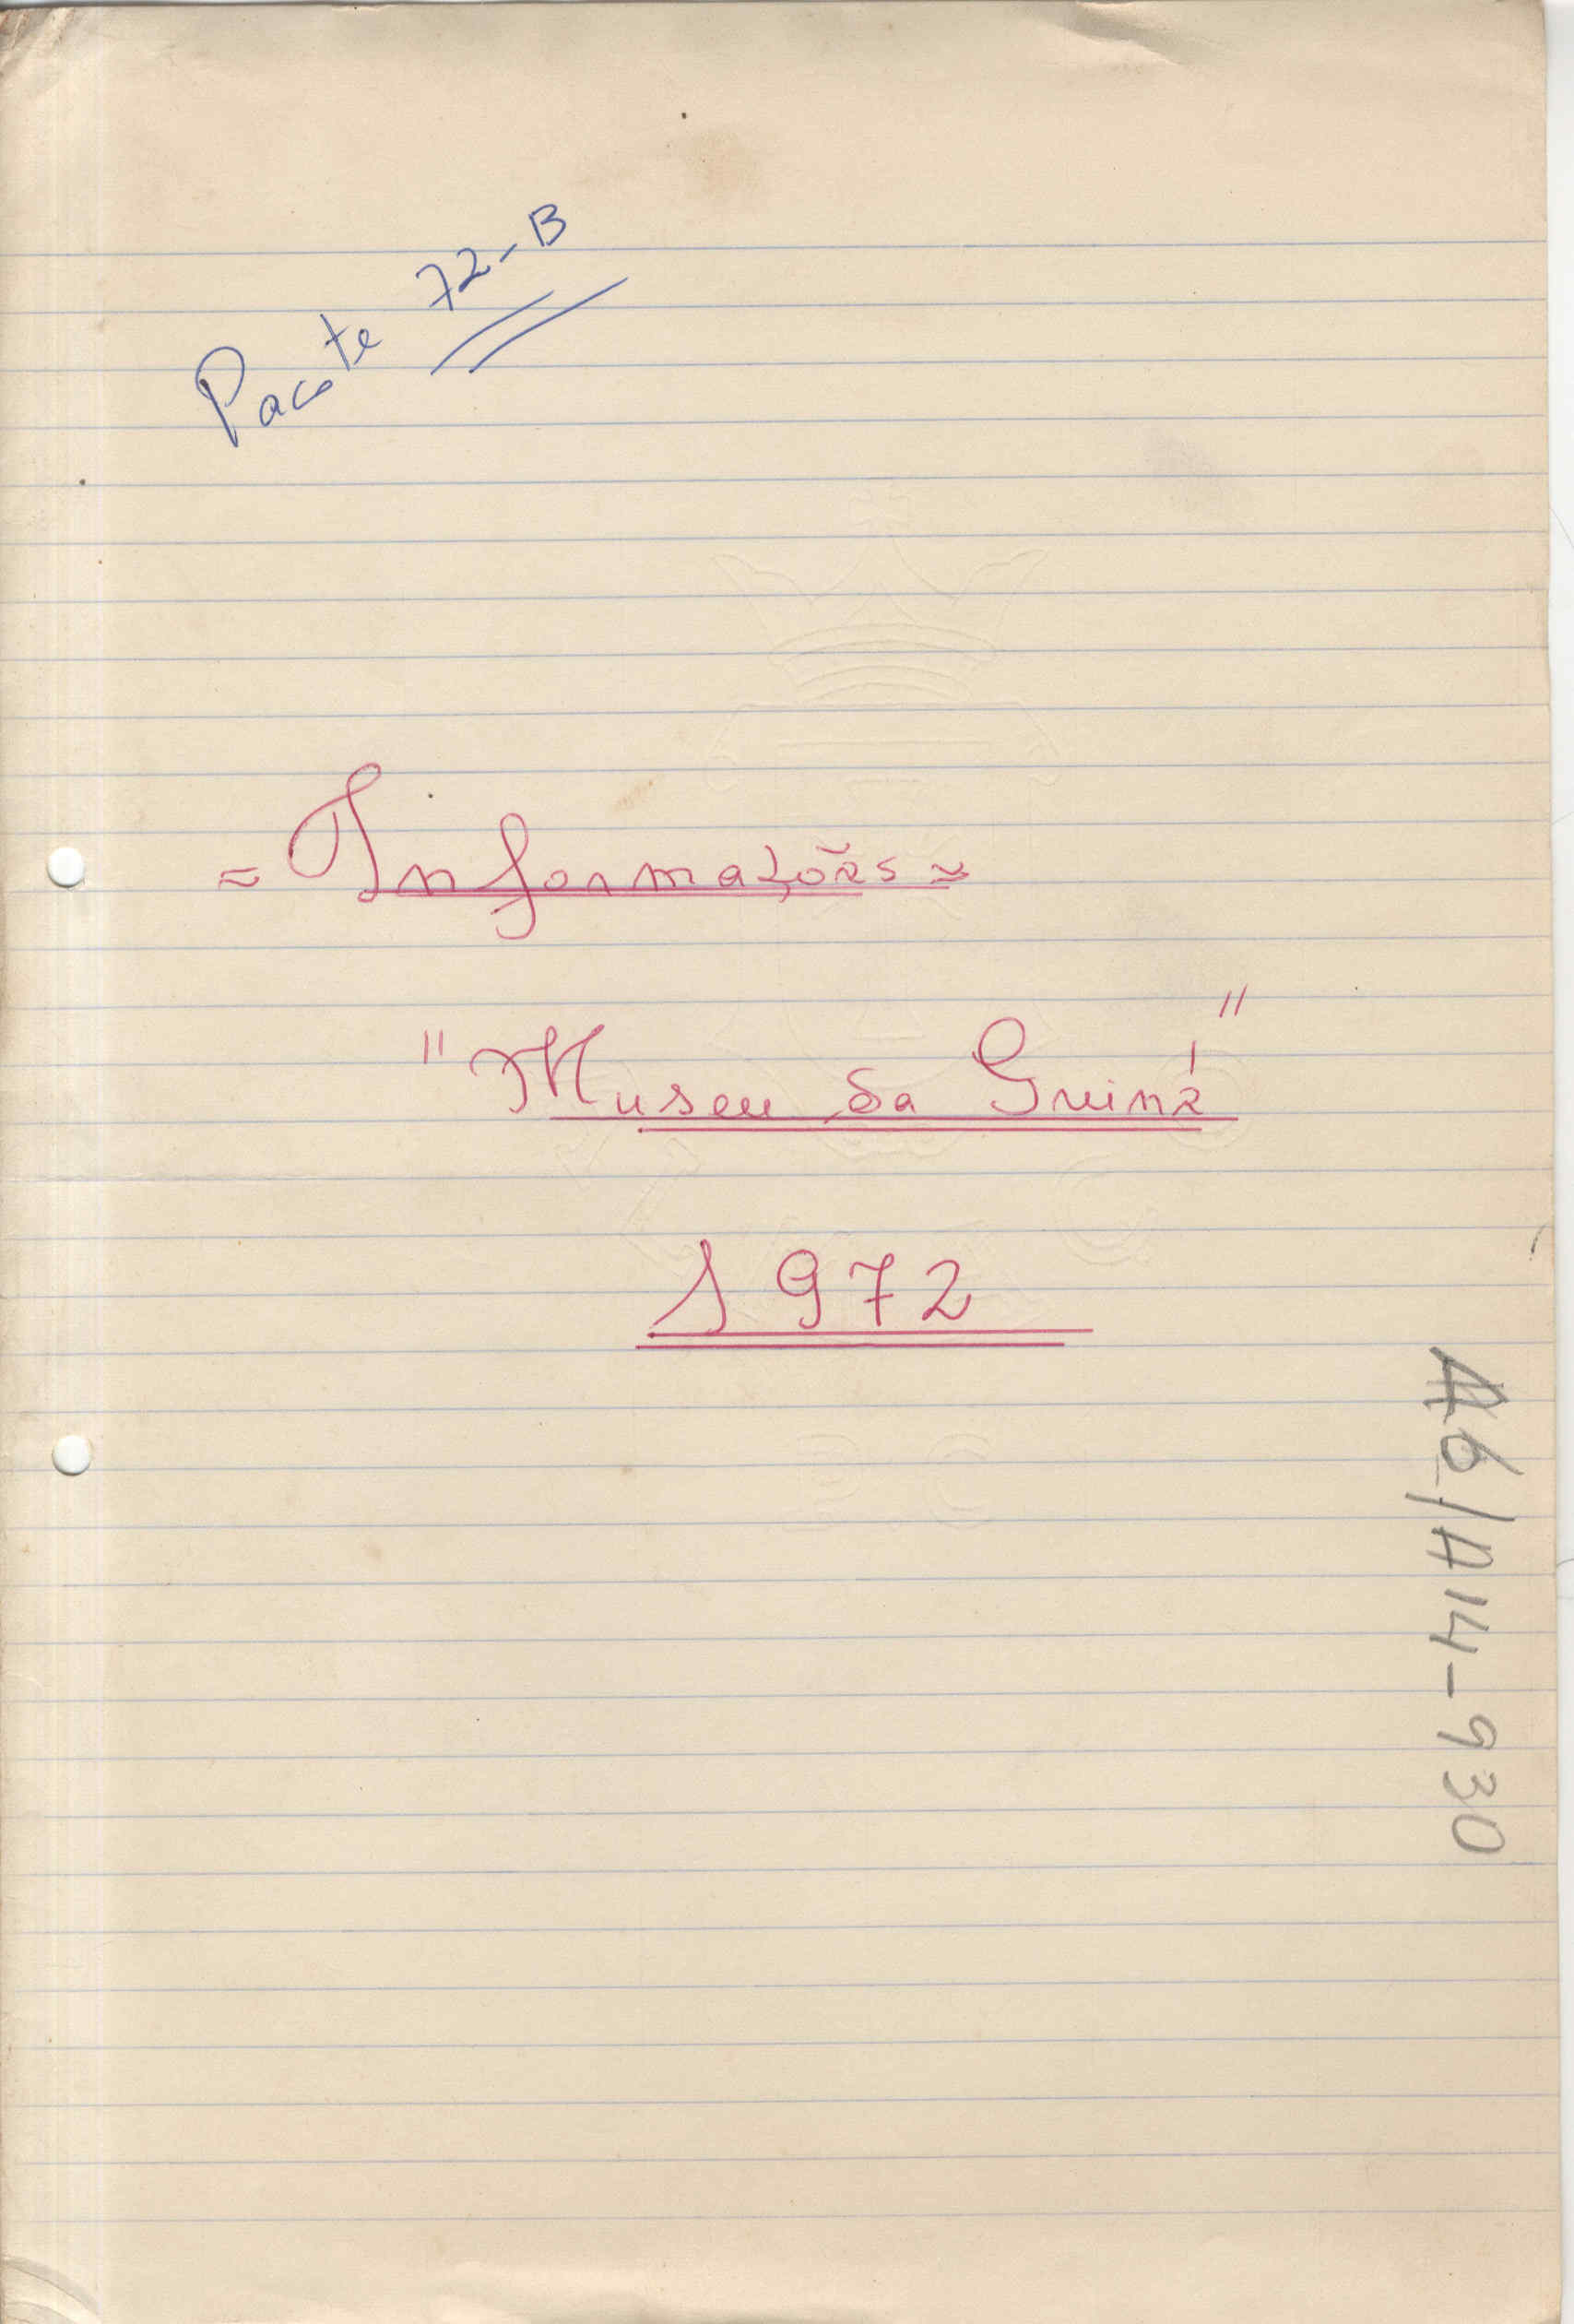 Pacote 72-B
= Informações =
"Museu da Guiné"
1972
A6/A14-930